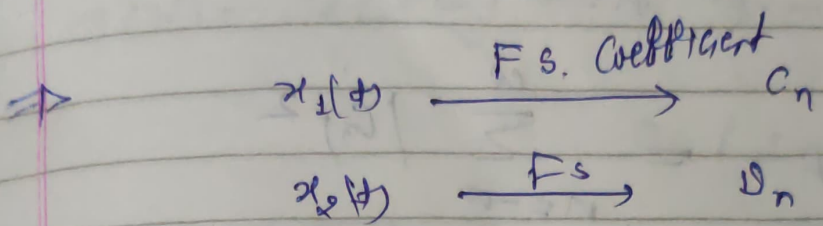 ⇒ x₁(t) F S. Coefficient → Cₙ
x₂(t) FS → Dₙ